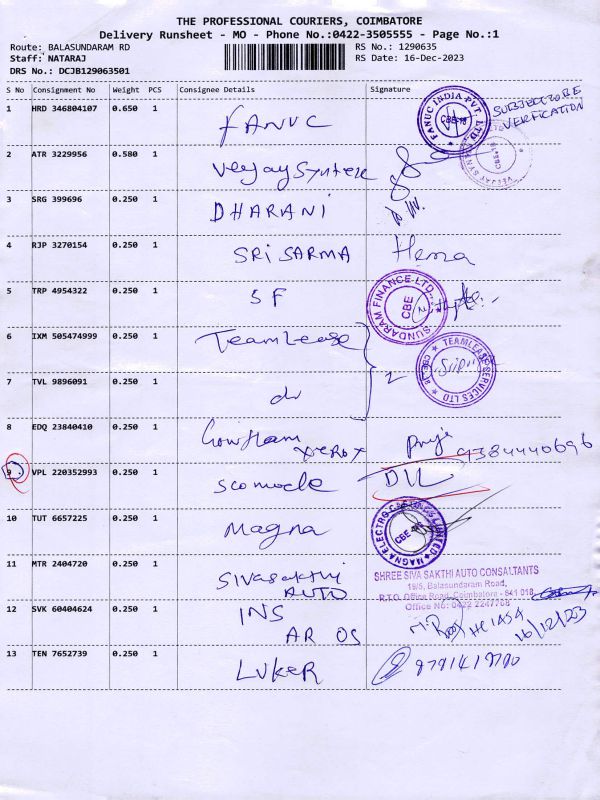 THE PROFESSIONAL COURIERS, COIMBATORE
Delivery Runsheet - MO - Phone No.:0422-3505555 - Page No.:1
Route: BALASUNDARAM RD RS No.: 1290635
Staff: NATARAJ RS Date: 16-Dec-2023
DRS No.: DCJB129063501
S No Consignment No Weight PCS Consignee Details Signature
1 HRD 346804107 0.650 1 FANUC FANUC INDIA PVT. LTD CBE-18 SUBJECT TO BE VERIFICATION
2 ATR 3229956 0.580 1 Veejay VEEJAY CBE-18
3 SRG 399696 0.250 1 DHARANI
4 RJP 3270154 0.250 1 SRI SARMA Hema
5 TRP 4954322 0.250 1 SF SUNDARAM FINANCE LTD. CBE
6 IXM 505474999 0.250 1 TeamLease TEAMLEASE SERVICES LTD
7 TVL 9896091 0.250 1 do 2
8 EDQ 23840410 0.250 1 Gowtham xerox 9384440696
9 VPL 220352993 0.250 1 DIL
10 TUT 6657225 0.250 1 Magna MAGNA ELECTRO LIMITED
11 MTR 2404720 0.250 1 Sivasakthi AUTO SHREE SIVA SAKTHI AUTO CONSULTANTS
19/5, Balasundaram Road,
R.T.O. Office Road, Coimbatore - 641 018.
Office No: 0422 2247768
12 SVK 60404624 0.250 1 INS AROS HC1454 16/12/23
13 TEN 7652739 0.250 1 LUKER